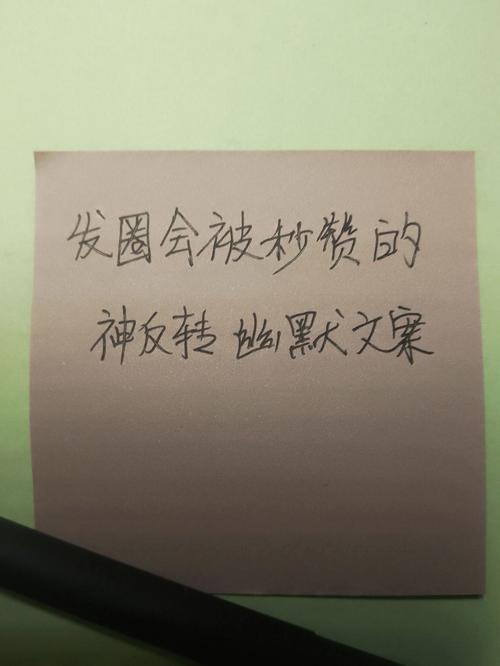 发圈会被秒赞的
神反转幽默文案